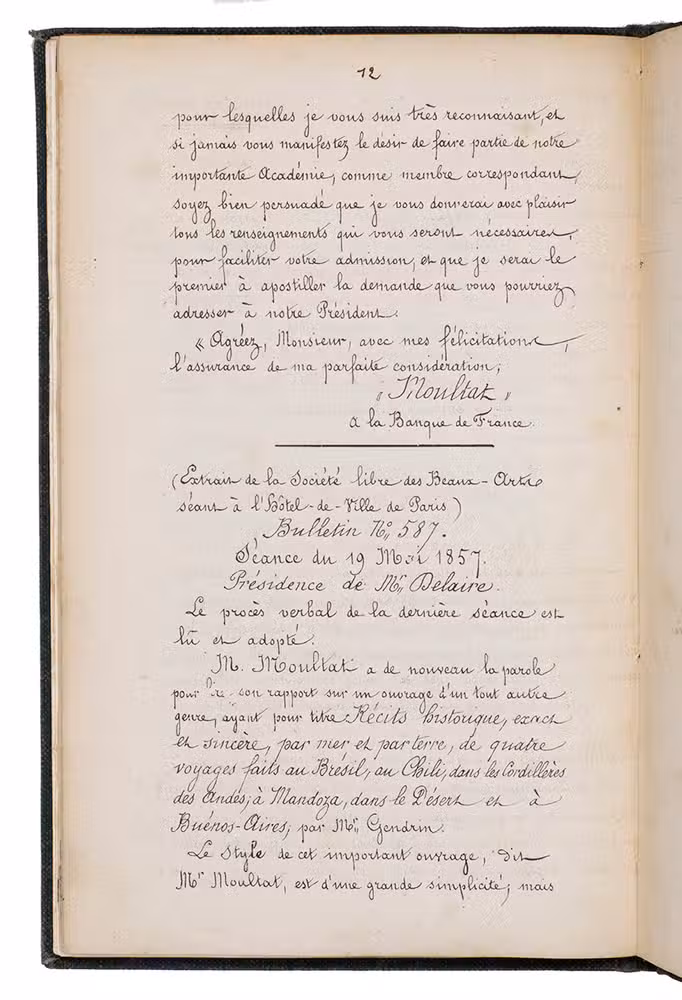 12
pour lesquelles je vous suis très reconnaisant, et
si jamais vous manifestez le désir de faire partie de notre
importante Académie, comme membre correspondant,
soyez bien persuadé que je vous donnerai avec plaisir
tous les renseignements qui vous seront nécessaires,
pour faciliter votre admission, et que je serai le
premier à apostiller la demande que vous pourriez
adresser à notre Président.
« Agréez, Monsieur, avec mes félicitations,
l'assurance de ma parfaite considération;
" Moultat "
a la Banque de France.
(Extrait de la Société libre des Beaux-Arts
séant à l'Hôtel-de-Ville de Paris)
Bulletin No 587.
Séance du 19 Mai 1857.
Présidence de Mr Delaire.
Le procès verbal de la dernière séance est
lû et adopté.
M. Moultat a de nouveau la parole
pour lire son rapport sur un ouvrage d'un tout autre
genre, ayant pour titre Récits historique, exact
et sincère, par mer et par terre, de quatre
voyages faits au Brésil, au Chili, dans les Cordillères
des Andes, à Mandoza, dans le Désert et à
Buénos-Aires, par Mr Gendrin.
Le Style de cet important ouvrage, dit
Mr Moultat, est d'une grande simplicité; mais